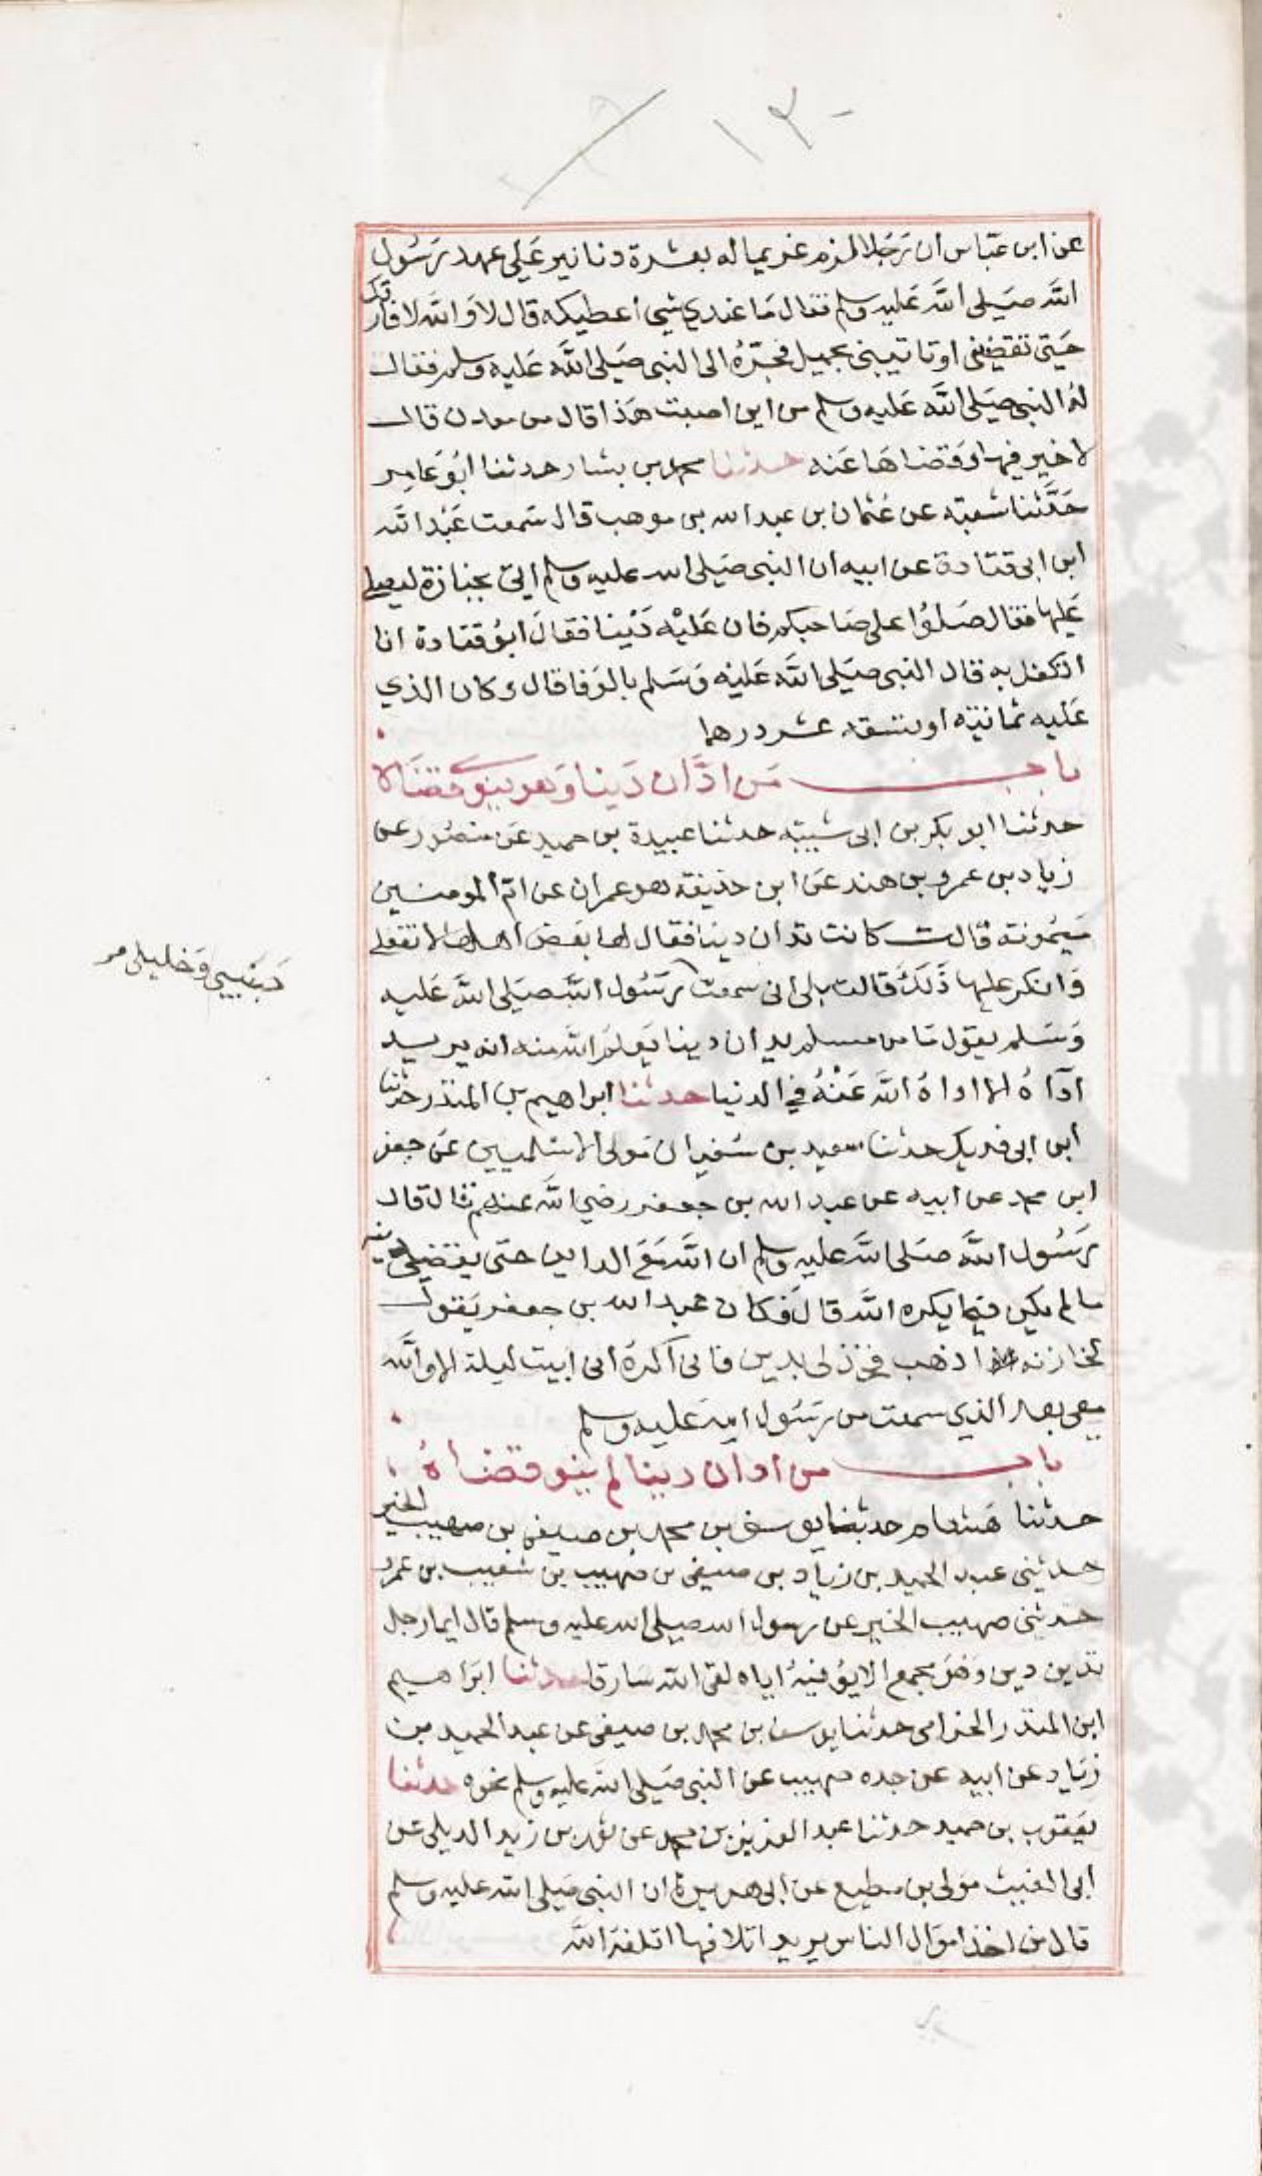 ١٣٠
عن ابن عباس ان رجلا لزم غريما له بعشرة دنانير على عهد رسول
الله صلى الله عليه وسلم فقال ما عندي شي اعطيكه قال لا والله لا فارقتك
حتى تقضيني او تاتيني بحميل فجره الى النبي صلى الله عليه وسلم فقال
له النبي صلى الله عليه وسلم من اين اصبت هذا قال من معدن قال
لا خير فيها وقضاها عنه حدثنا محمد بن بشار حدثنا ابو عامر
حدثنا شعبة عن عثمان بن عبد الله بن موهب قال سمعت عبد الله
ابن ابي قتادة عن ابيه ان النبي صلى الله عليه وسلم اتي بجنازة ليصلي
عليها فقال صلوا على صاحبكم فان عليه دينا فقال ابو قتادة انا
اتكفل به قال النبي صلى الله عليه وسلم بالوفا قال وكان الذي
عليه ثمانية او تسعة عشر درهما
باب من ادان دينا وهو ينوي قضاه
حدثنا ابو بكر بن ابي شيبة حدثنا عبيدة بن حميد عن منصور عن
زياد بن عمرو بن هند عن ابن حذيفة هو عمران عن ام المومنين
ميمونة قالت كانت تدان دينا فقال لها بعض اهلها لا تفعلي
وانكر عليها ذلك قالت بلى اني سمعت رسول الله صلى الله عليه
نبيي وخليلي
وسلم يقول ما من مسلم يدان دينا يعلم الله منه انه يريد
اداه الا اداه الله عنه في الدنيا حدثنا ابراهيم بن المنذر حدثنا
ابن ابي فديك حدثنا سعيد بن سفيان مولى الاسلميين عن جعفر
ابن محمد عن ابيه عن عبد الله بن جعفر رضي الله عنهم قال قال
رسول الله صلى الله عليه وسلم ان الله مع الداين حتى يقضي دينه
ما لم يكن فيما يكره الله قال فكان عبد الله بن جعفر يقول
لخازنه اذهب فخذ لي بدين فاني اكره ان ابيت ليلة الا والله
معي بعد الذي سمعت من رسول الله عليه وسلم
باب من ادان دينا لم ينو قضاه
حدثنا هشام حدثنا يوسف بن محمد بن صيفي بن صهيب الخير
حدثني عبد الحميد بن زياد بن صيفي بن صهيب بن شعيب بن عمرو
حدثني صهيب الخير عن رسول الله صلى الله عليه وسلم قال ايما رجل
تدين دين وهو مجمع الا يوفيه اياه لقي الله سارقا حدثنا ابراهيم
ابن المنذر الحزامي حدثنا يوسف بن محمد بن صيفي عن عبد الحميد بن
زياد عن ابيه عن جده صهيب عن النبي صلى الله عليه وسلم نحوه حدثنا
يعقوب بن حميد حدثنا عبد العزيز بن محمد عن ثور بن زيد الديلي عن
ابي الغيث مولى بن مطيع عن ابي هريرة ان النبي صلى الله عليه وسلم
قال من اخذ اموال الناس يريد اتلافها اتلفه الله